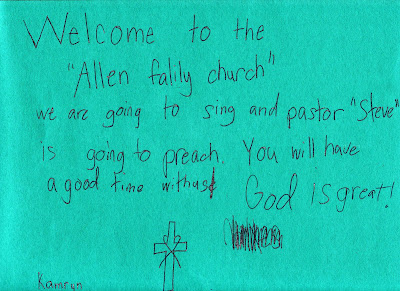 Welcome to the
"Allen falily church"
we are going to sing and pastor "Steve"
is going to preach. You will have
a good time with us
God is great!
Kamryn